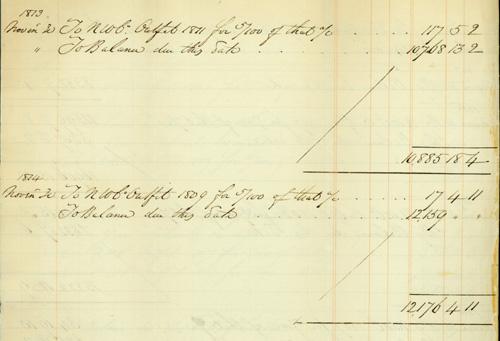 1813
Novem 30 To NWCo Outfit 1811 for 5/100 of that a/c . . . . . 117 5 2
" To Balance due this date . . . . . . . . 10768 13 2
10885 18 4
1814
Novem 30 To NWCo Outfit 1809 for 5/100 of that a/c . . . . . 17 4 11
To Balance due this date . . . . . . . . 12159 " "
12176 4 11